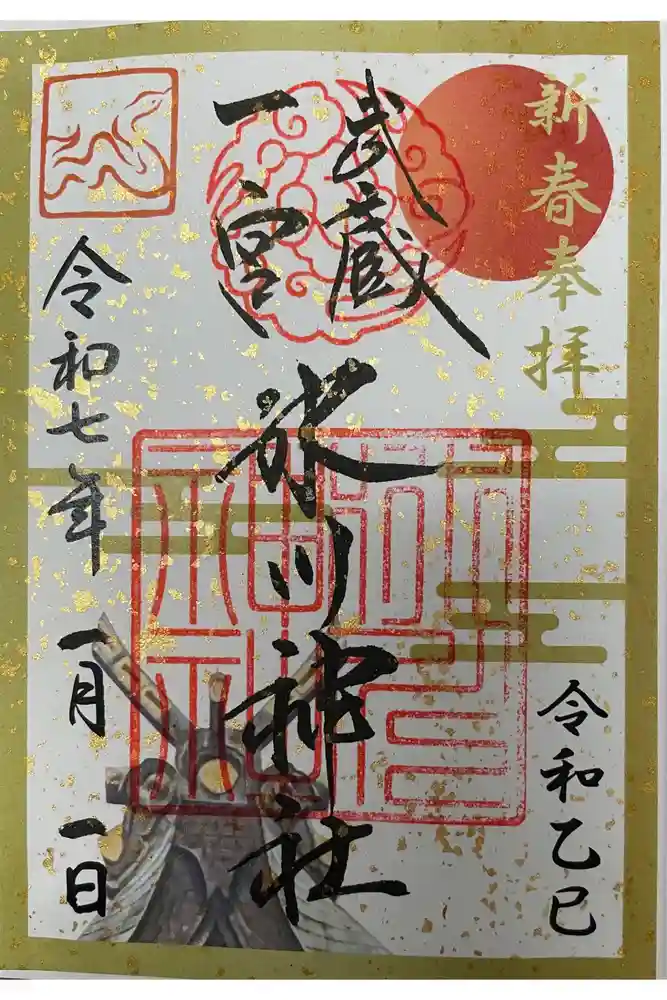 新春奉拝
令和乙巳
武蔵
一宮
氷川神社
令和七年 一月 一日